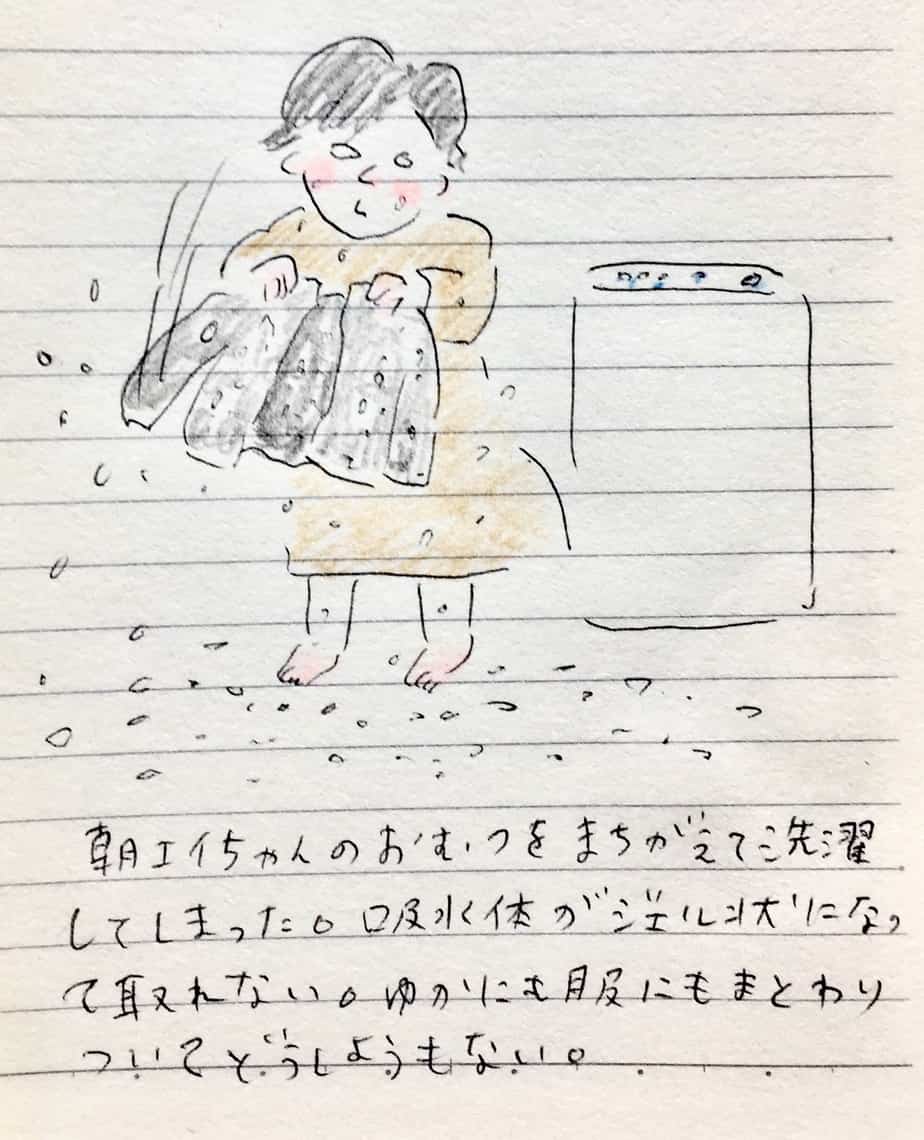 朝エイちゃんのおむつをまちがえて洗濯
してしまった。吸水体がジェル状になっ
て取れない。ゆかにも服にもまとわり
ついてどうしようもない。